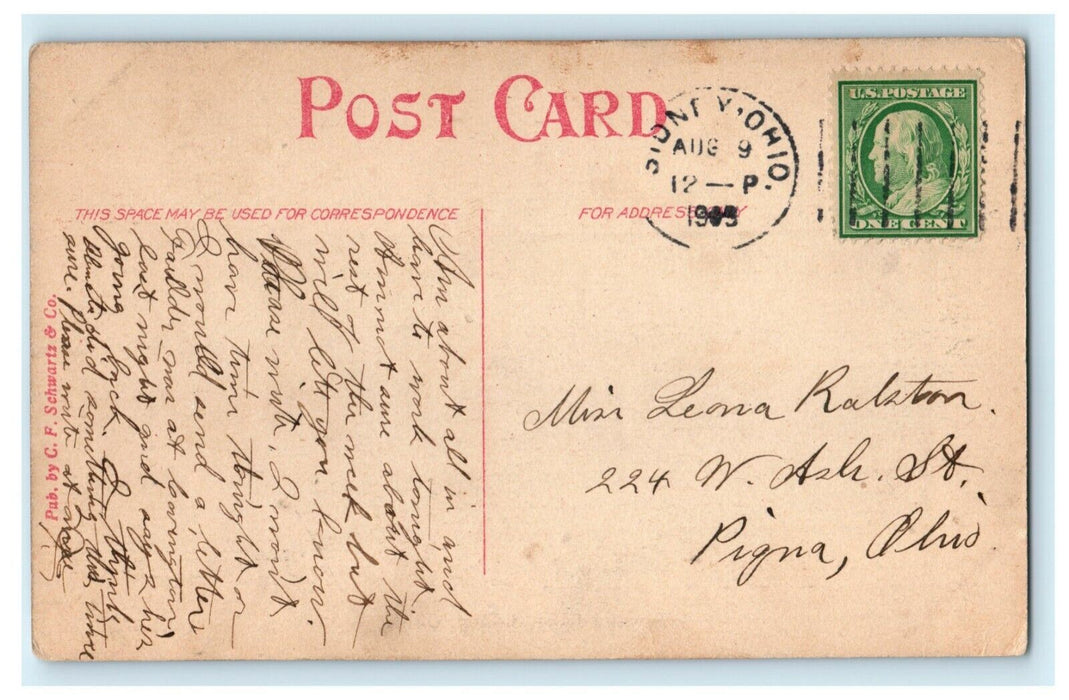 POST CARD
SIDNEY, OHIO.
AUG 9
12 — P
U.S. POSTAGE
ONE CENT
THIS SPACE MAY BE USED FOR CORRESPONDENCE
FOR ADDRESS ONLY
Am about all in and
have to work tonight.
Am not sure about the
rest of the week but
will let you know.
Please write. I wont
have time tonight or
I would send a letter
Saulder was at Covington
last night and says he's
going back. I think
Almeta did something this time
sure. Please write at once
Pub. by C. F. Schwartz & Co.
Miss Leona Ralston.
224 W. Ash. St.
Piqua, Ohio.